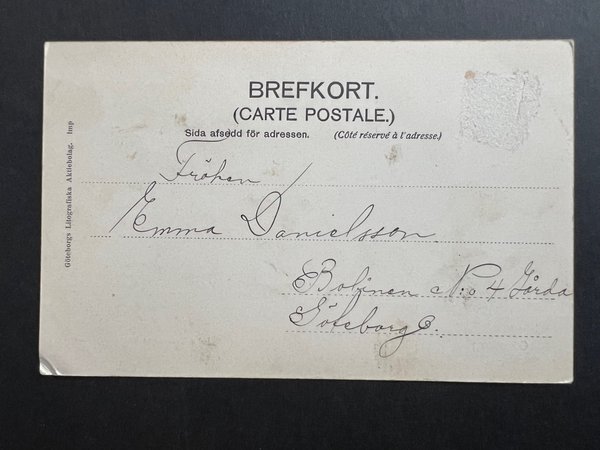 BREFKORT.
(CARTE POSTALE.)
Sida afsedd för adressen. (Côté réservé à l'adresse.)
Fröken
Emma Danielsson
No 4 Gårda
Göteborg
Göteborgs Litografiska Aktiebolag. Imp